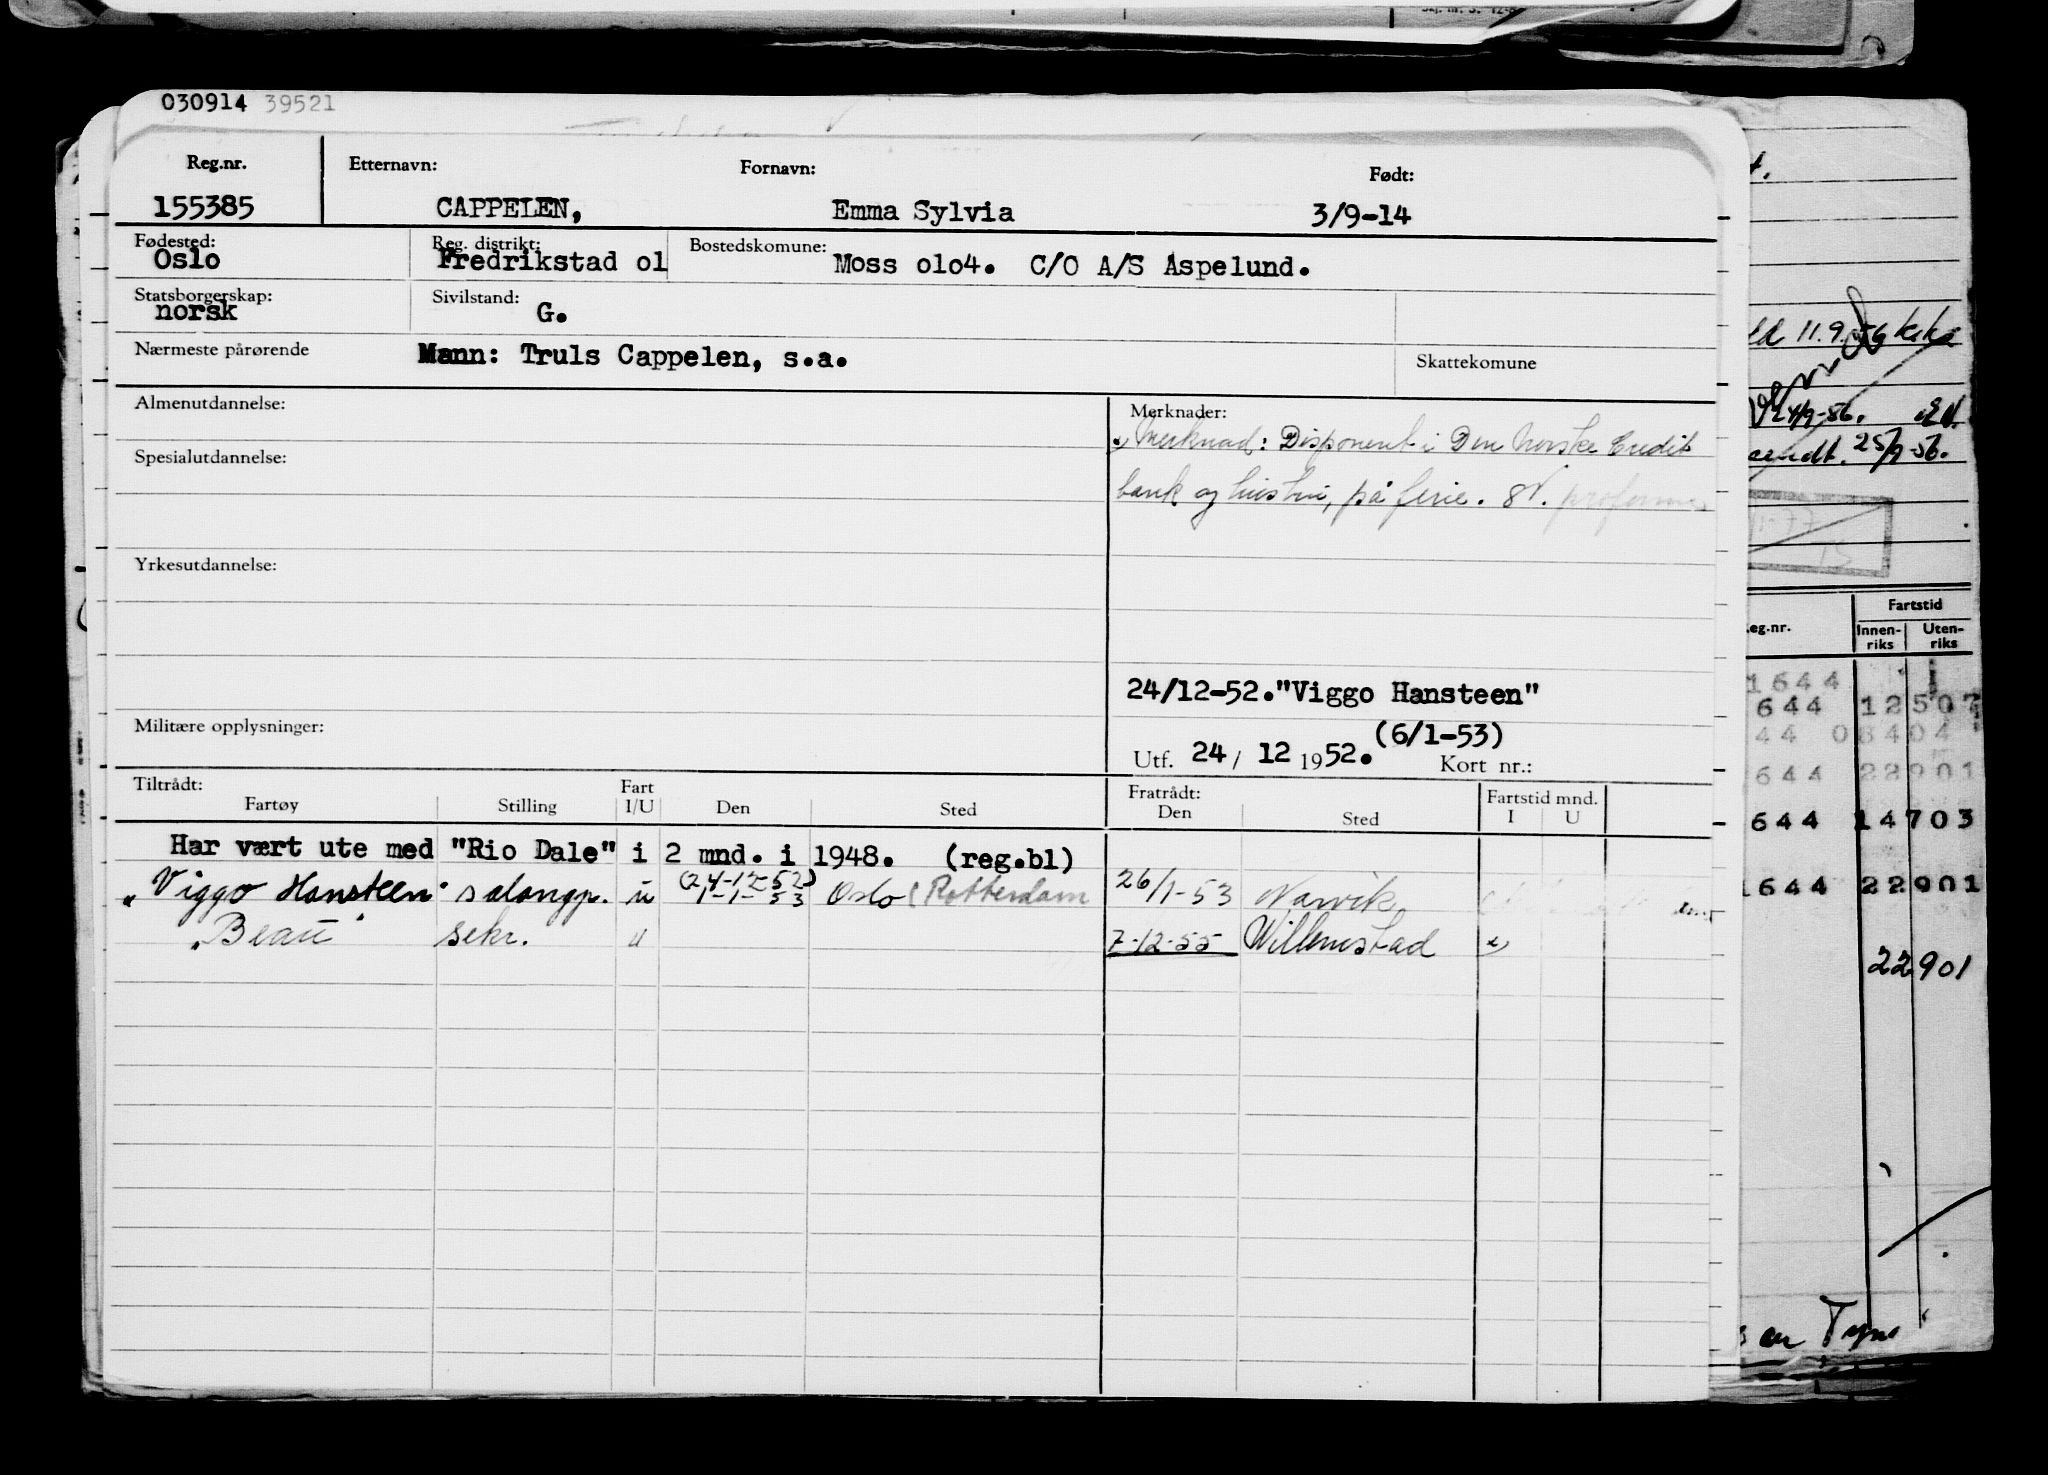 030914 39521
Reg.nr. Etternavn: Fornavn: Født:
155385 CAPPELEN, Emma Sylvia 3/9-14
Fødested: Reg. distrikt: Bostedskomune:
Oslo Fredrikstad ol Moss olo4. C/O A/S Aspelund.
Statsborgerskap: Sivilstand:
norsk G.
Nærmeste pårørende Mann: Truls Cappelen, s.a. Skattekomune
Almenutdannelse: Merknader:
Merknad: Disponent i Den Norske Credit
Spesialutdannelse:
bank og hustru, på ferie.
Yrkesutdannelse:
24/12-52."Viggo Hansteen"
Militære opplysninger: (6/1-53)
Utf. 24/ 12 1952. Kort nr.:
Tiltrådt: Fart Fratrådt: Fartstid mnd.
Fartøy Stilling I/U Den Sted Den Sted I U
Har vært ute med "Rio Dale" i 2 mnd. i 1948. (reg.bl)
"Viggo Hansteen" salongp. u (24-12-52) 1-1-53 Oslo (Rotterdam 26/1-53 Narvik
"Beau" sekr. u 7-12-55 Willemstad
11.9.56
24/9-56.
sendt. 25/9-56.
eg.nr. Fartstid
Innen-riks Uten-riks
1644
644 12507
44 08404
644 22901
644 14703
1644 22901
22901